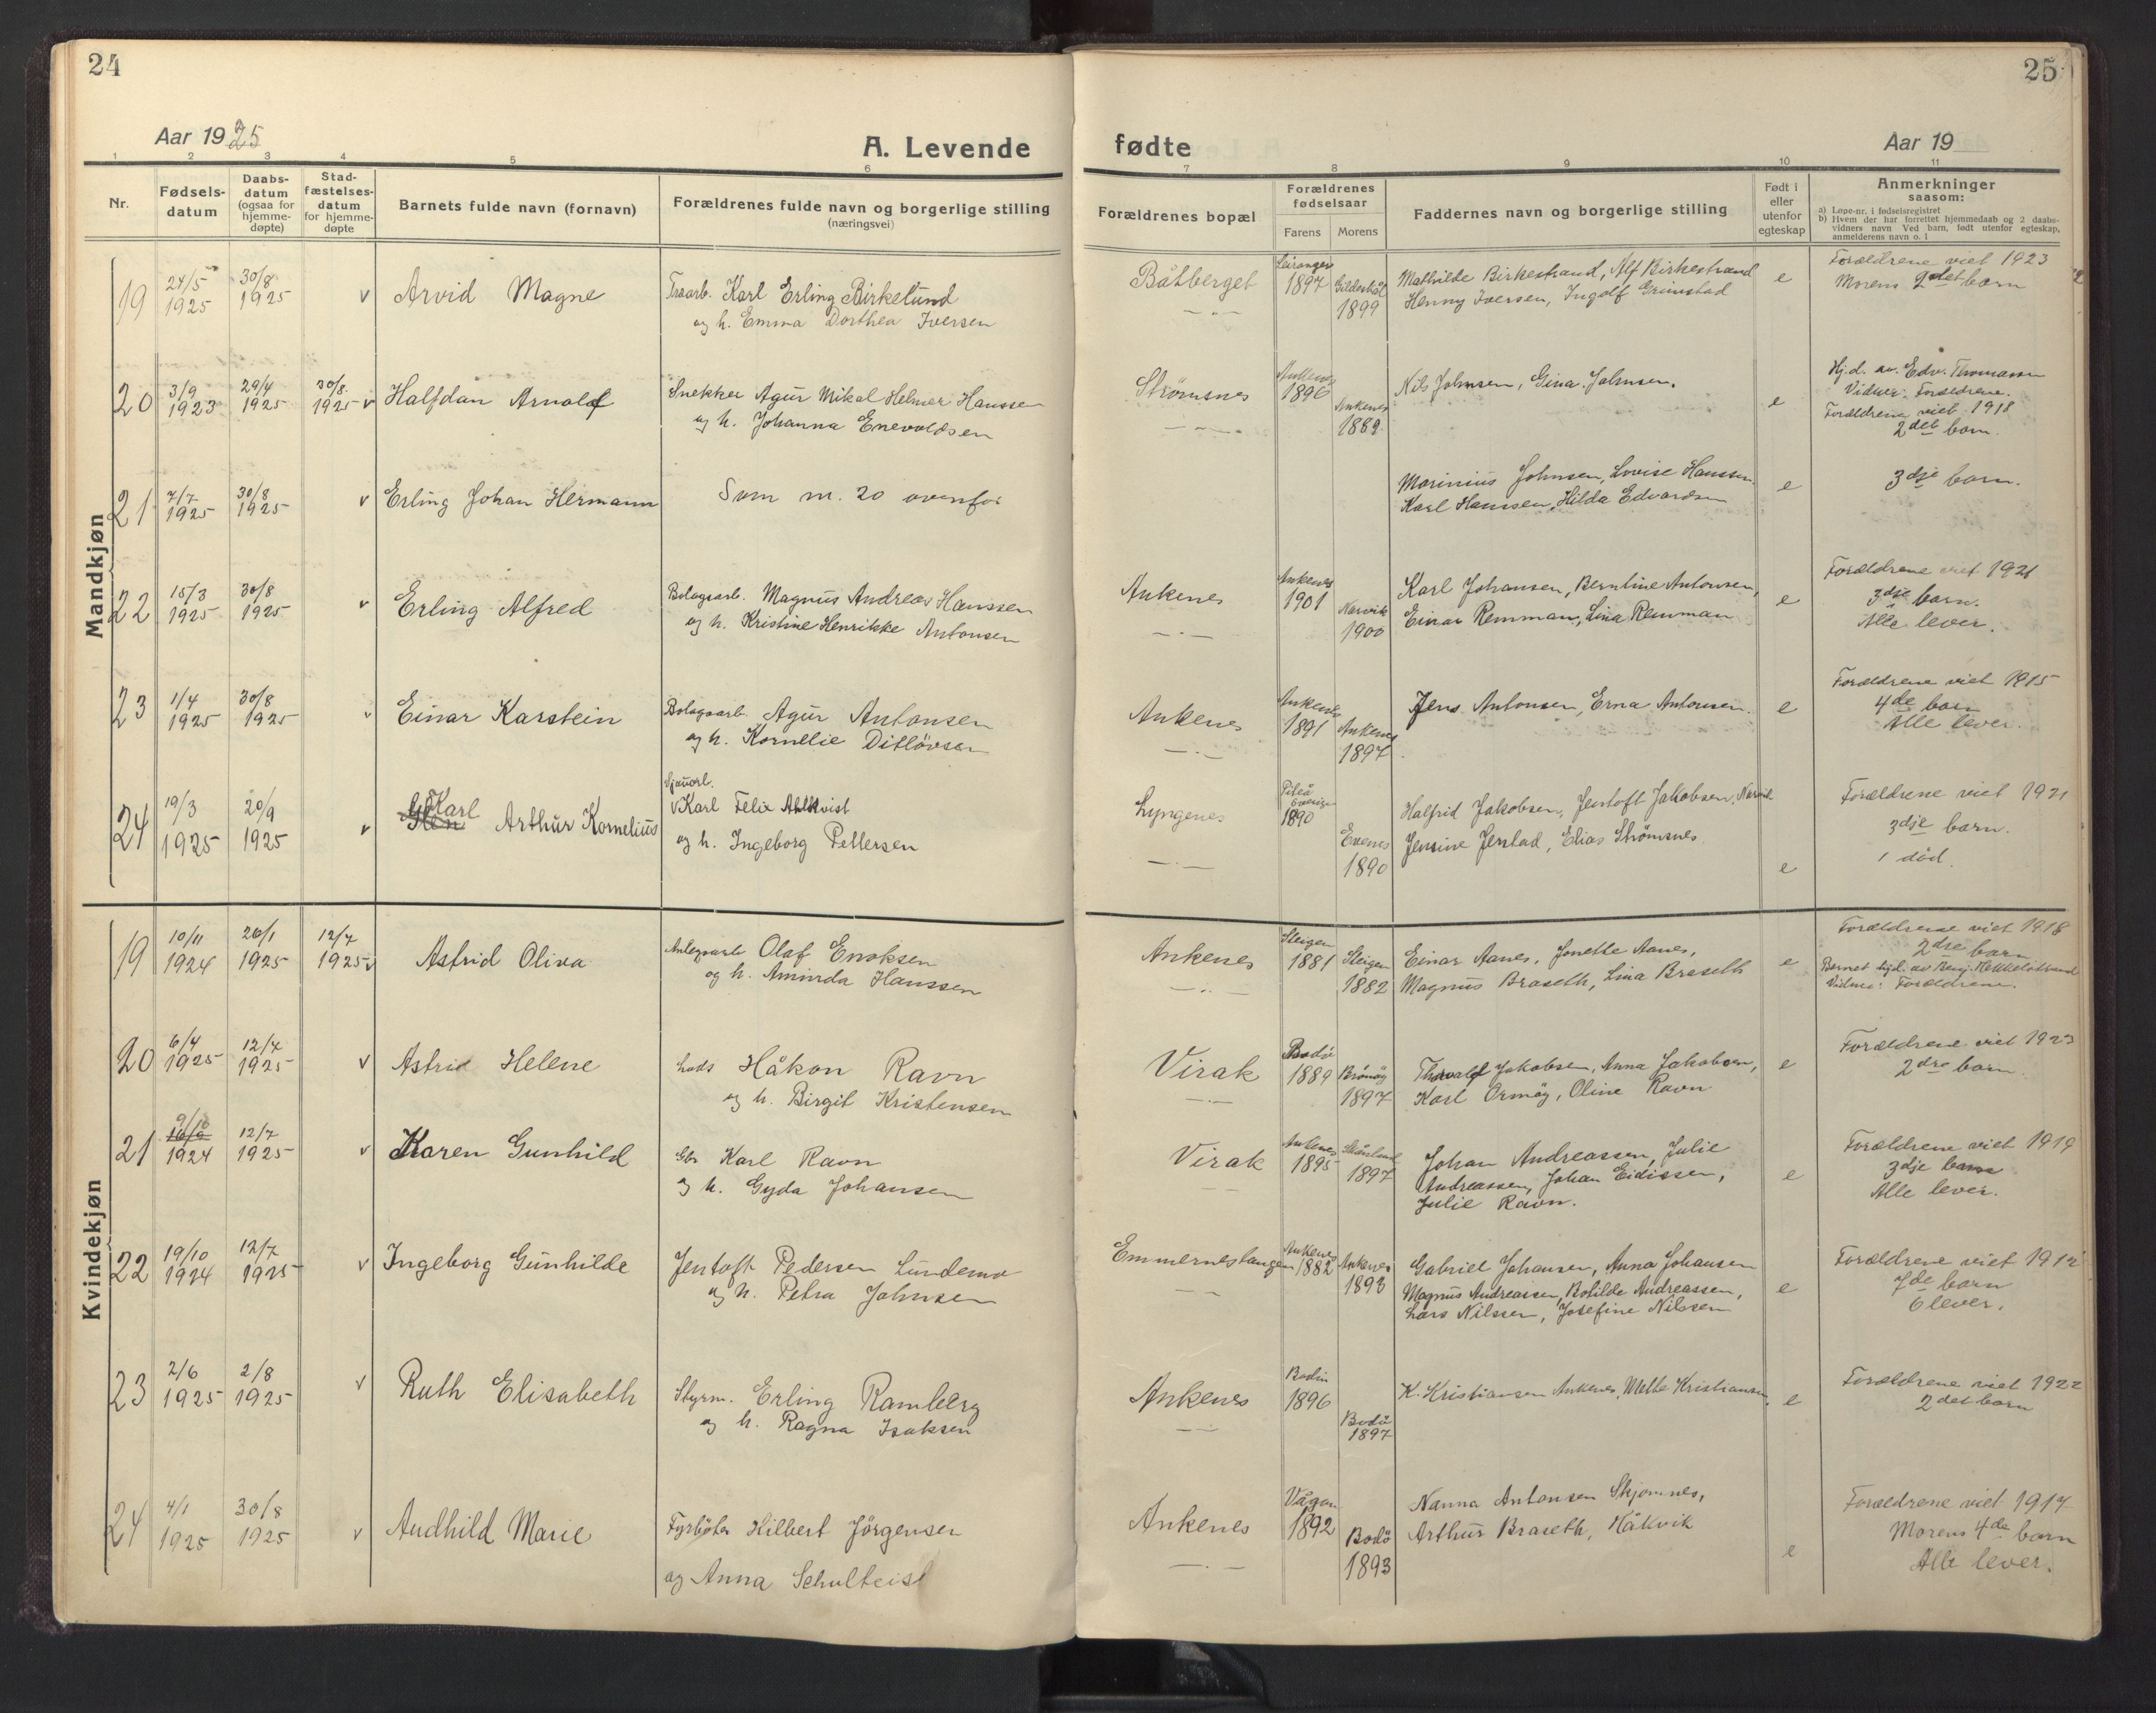 24
Aar 1925
A. Levende
1 2 3 4 5 6
Nr.
Fødsels-
datum
Daabs-
datum
(ogsaa for
hjemme-
døpte)
Stad-
fæstelses-
datum
for hjemme-
døpte
Barnets fulde navn (fornavn)
Forældrenes fulde navn og borgerlige stilling
(næringsvei)
Mandkjøn
19 24/5 1925 30/8 1925 v Arvid Magne
Karl Erling Birkelund
og h. Emma Dorthea Iversen
20 3/9 1923 29/4 1925 30/8 1925 v Halfdan Arnolf
Snekker Agur Mikal Helmer Hanssen
og h. Johanna Enevoldsen
21 7/7 1925 30/8 1925 v Erling Johan Hermann
Som nr. 20 ovenfor
22 15/3 1925 30/8 1925 v Erling Alfred
Bolagsarb. Magnus Andreas Hanssen
og h. Kristine Henrikke Antonsen
23 1/4 1925 30/8 1925 v Einar Karstein
Bolagsarb. Agur Antonsen
og h. Kornelie Ditløvsen
24 19/3 1925 20/9 1925 v Karl Arthur Kornelius
Sjauarb.
v Karl Felix Ahlkvist
og h. Ingeborg Pettersen
Kvindekjøn
19 10/11 1924 26/1 1925 12/7 1925 v Astrid Oliva
Anlegsarb Olaf Enoksen
og h. Aminda Hanssen
20 6/4 1925 12/7 1925 v Astrid Helene
Lods Håkon Ravn
og h. Birgit Kristensen
21 9/10 1924 12/7 1925 v Karen Gunhild
Gbr Karl Ravn
og h. Gyda Johansen
22 19/10 1924 12/7 1925 v Ingeborg Gunhilde
Jentoft Pedersen Lundemo
og h. Petra Johnsen
23 2/6 1925 2/8 1925 v Ruth Elisabeth
Styrm. Erling Ramberg
og h. Ragna Isaksen
24 4/1 1925 30/8 1925 v Audhild Marie
Fyrbøter Hilbert Jørgensen
og Anna Schulteist
25
fødte
Aar 19
7 8 9 10 11
Forældrenes bopæl
Forældrenes
fødselsaar
Farens Morens
Faddernes navn og borgerlige stilling
Født i
eller
utenfor
egteskap
Anmerkninger
saasom:
a) Løpe-nr. i fødselsregistret
b) Hvem der har forrettet hjemmedaab og 2 daabs-
vidners navn Ved barn, født utenfor egteskap,
anmelderens navn o. l
Båtberget
Leiranger 1897 Gildeskål 1899
Mathilde Birkestrand, Alf Birkestrand
Henny Iversen, Ingolf Grimstad
e
Forældrene viet 1923
Morens 2det barn
Strømsnes
Ankenes 1896 Ankenes 1889
Nils Johnsen, Gina Johnsen.
e
Hj.d. av. Edv. Thomassen
Vidner: Forældrene.
Forældrene viet 1918
2det barn.
Marinius Johnsen, Lovise Hanssen.
Karl Hanssen, Hilda Edvardsen
e
3dje barn.
Ankenes
Ankenes 1901 Narvik 1900
Karl Johansen, Berntine Antonsen,
Einar Remman, Lina Remman
e
Forældrene viet 1921
3dje barn.
Alle lever.
Ankenes
Ankenes 1891 Ankenes 1897
Jens Antonsen, Erna Antonsen.
e
Forældrene viet 1915
4de barn
Alle lever.
Lyngenes
Piteå Sverige 1890 Evenes 1890
Halfrid Jakobsen, Jentoft Jakobsen, Narvik
Jensine Jenstad, Elias Strømsnes
e
Forældrene viet 1921
3dje barn.
1 død.
Ankenes
Steigen 1881 Steigen 1882
Einar Aanes, Jonette Aanes,
Magnus Braseth, Lina Braseth
e
Forældrene viet 1918
2dre barn
Barnet hjd. av Benj. Hekkelstrand
Vidner: Forældrene.
Virak
Bodø 1889 Brønøy 1897
Thorvald Jakobsen, Anna Jakobsen,
Karl Ormøy, Oline Ravn
e
Forældrene viet 1923
2dre barn.
Virak
Ankenes 1895 Skånland 1897
Johan Andreassen, Julie
Andreassen, Johan Eidissen,
Julie Ravn.
e
Forældrene viet 1919
3dje barn
Alle lever.
Emmernestangen
Ankenes 1882 Ankenes 1893
Gabriel Johansen, Anna Johansen
Magnus Andreassen, Bolilde Andreassen,
Lars Nilssen, Josefine Nilssen
e
Forældrene viet 1912
7de barn
6 lever.
Ankenes
Bodin 1896 Bodø 1897
K. Kristiansen Ankenes, Methe Kristiansen.
e
Forældrene viet 1922
2det barn
Ankenes
Vågan 1892 Bodø 1893
Nanna Antonsen Skjomnes,
Arthur Braseth, Håkvik
e
Forældrene viet 1917
Morens 4de barn
Alle lever.